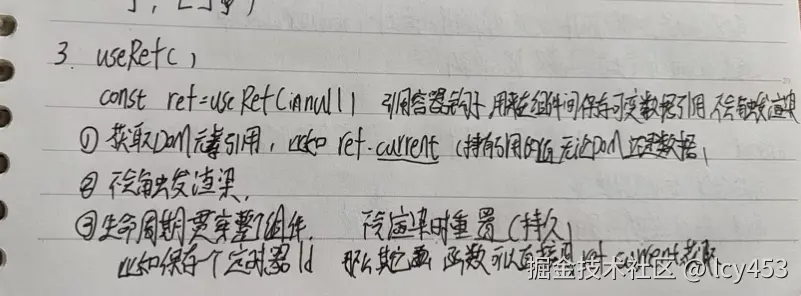 3. useRef()
const ref=useRef(null) 引用容器钩子,用来在组件间保存可变数据引用 不会触发渲染
① 获取DOM元素引用, 比如 ref.current (持有引用的值 无论DOM还是数据)
② 不会触发渲染.
③ 生命周期贯穿整个组件. 不会渲染时重置(持久)
比如保存一个定时器id 那么其它 函数可以直接用ref.current获取
掘金技术社区 @ lcy453